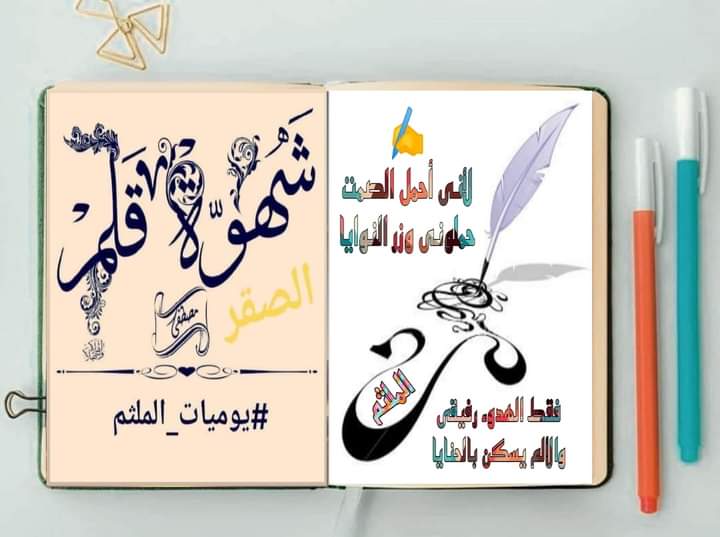 شَهْوَة قَلَمْ
الصقر
مصطفى
#يوميات_الملثم
لأنى أحمل الصمت
حملونى وزر النوايا
الملثم
فقط الهدوء رفيقى
والالم يسكن بالحنايا